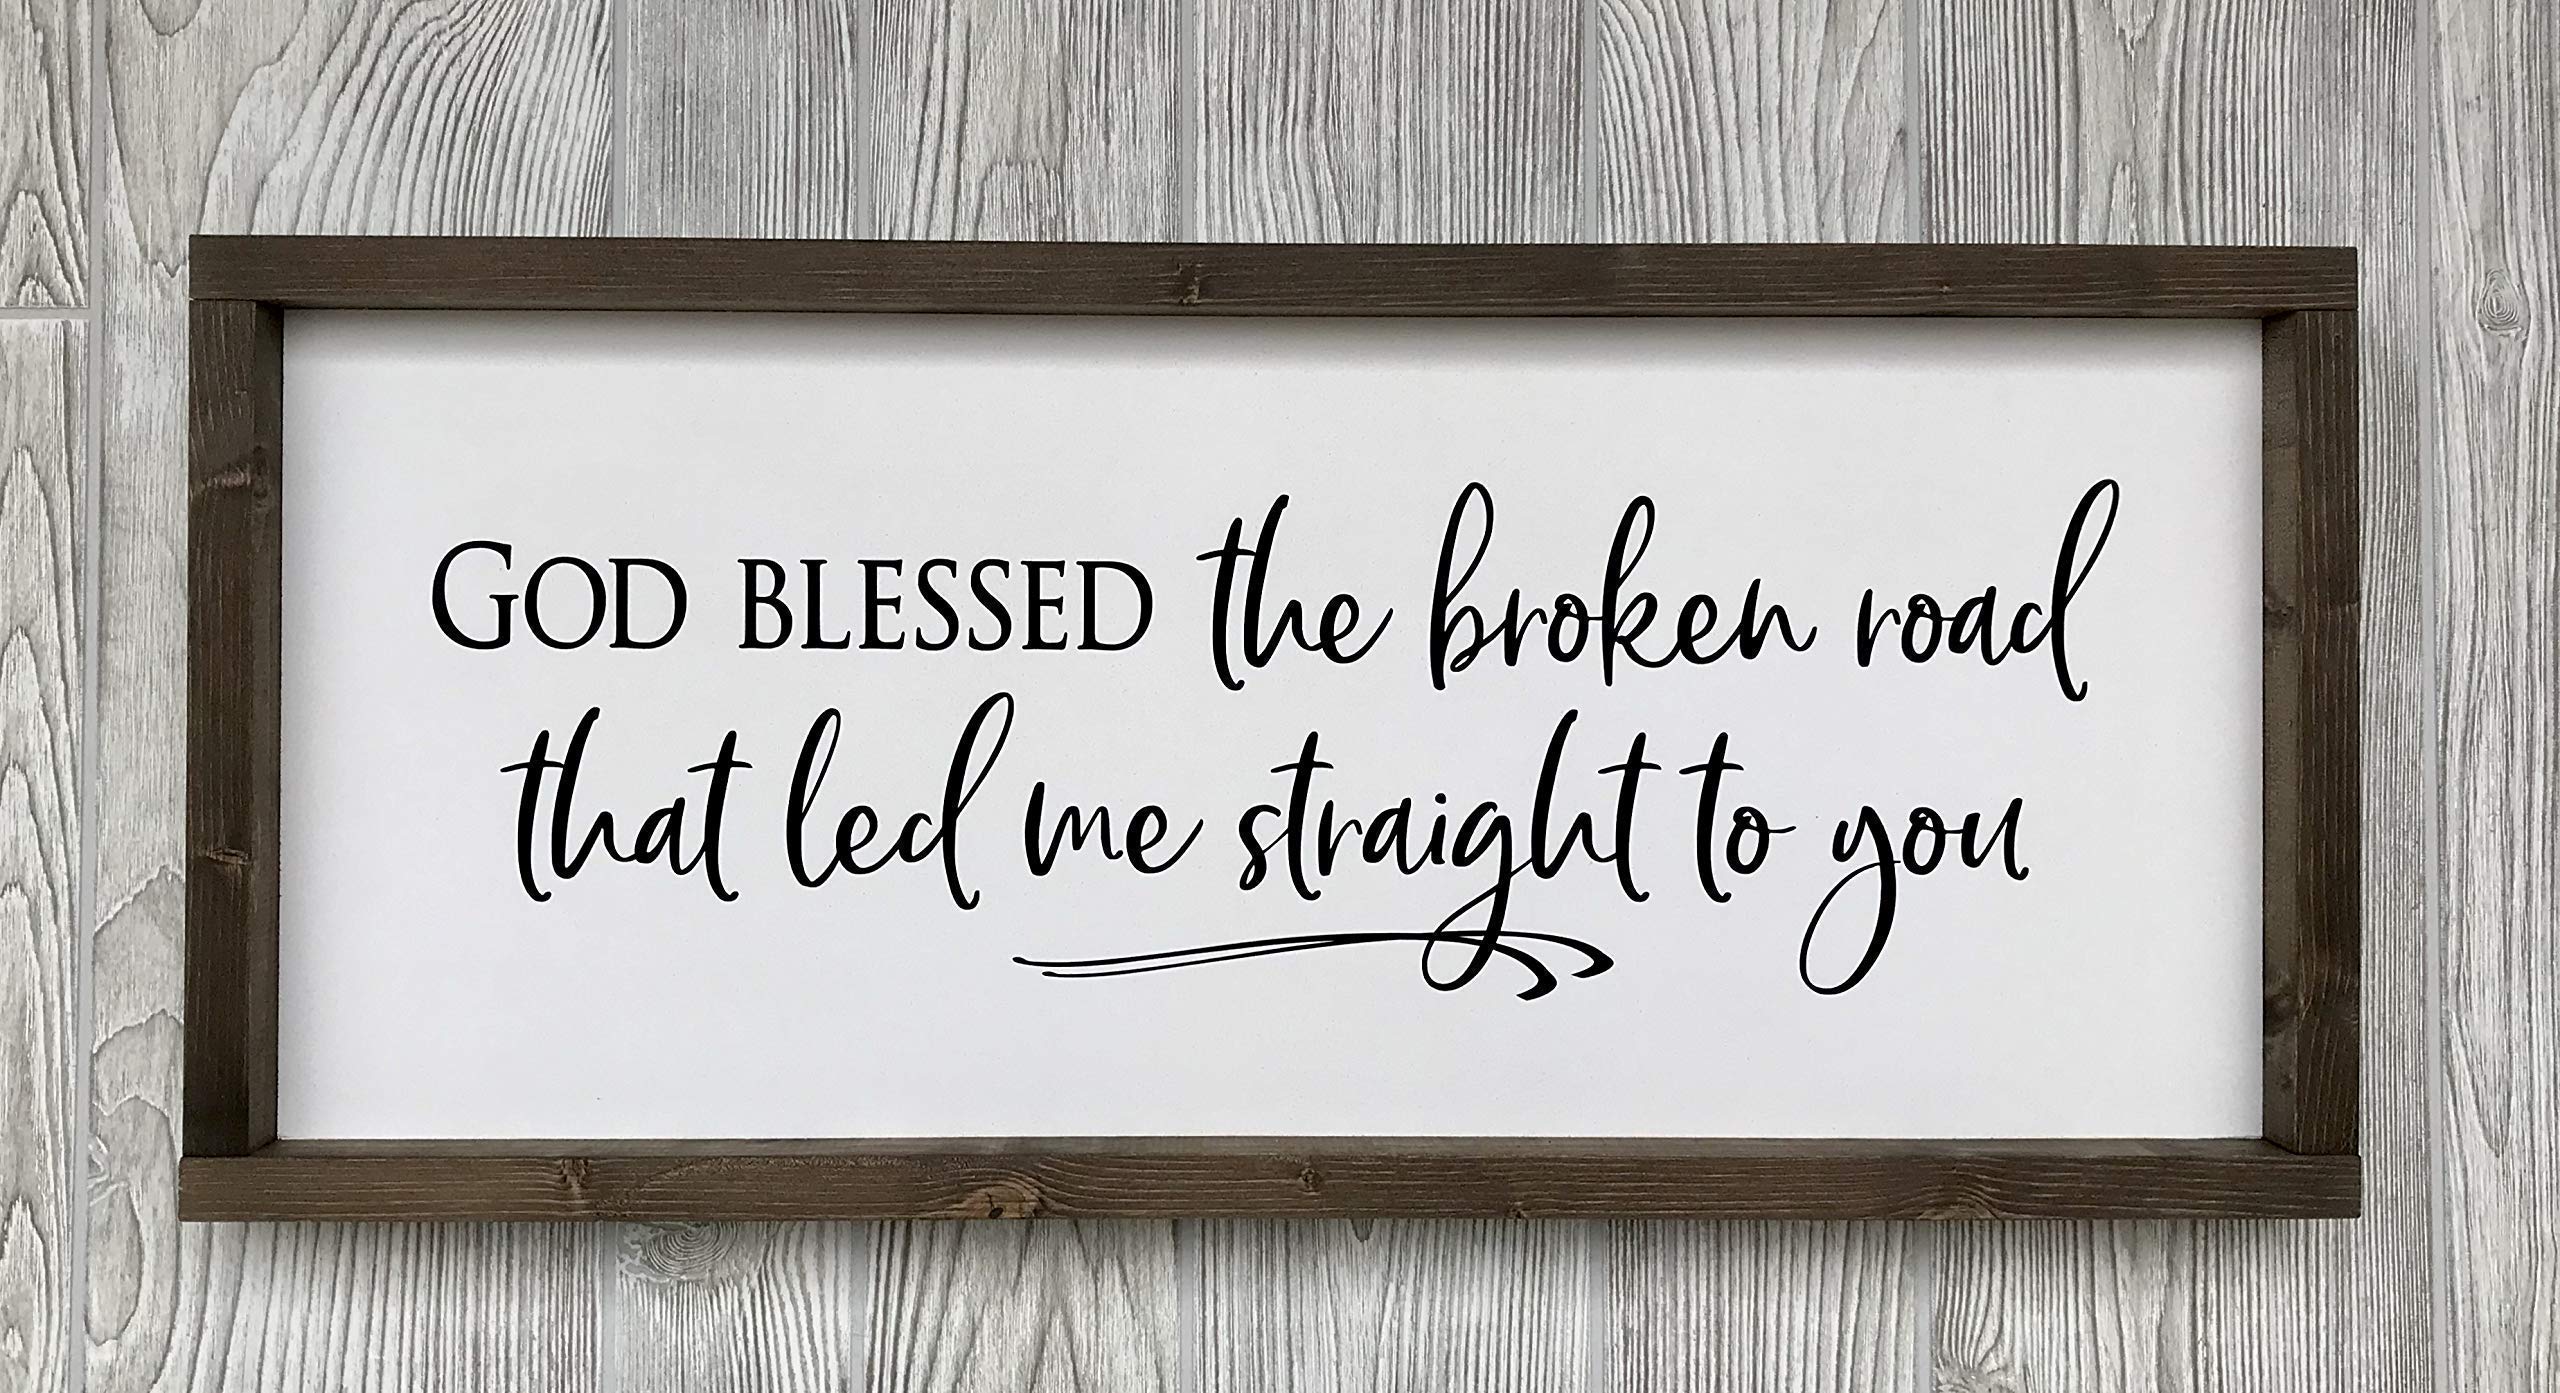 GOD BLESSED the broken road
that led me straight to you